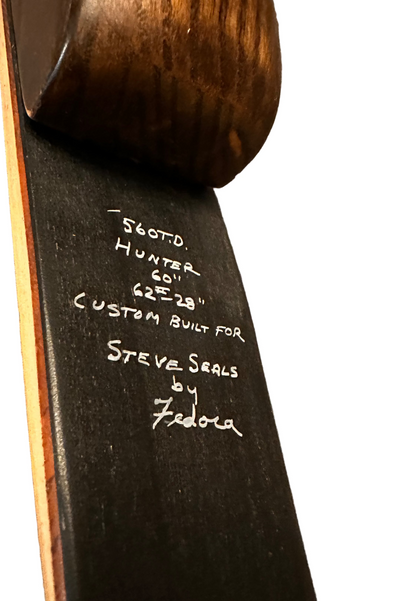 560T.D.
HUNTER
60"
62#-28"
CUSTOM BUILT FOR
STEVE SEALS
by
Fedora